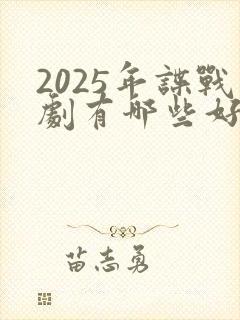 2025年諜戰
劇有哪些好
苗志勇